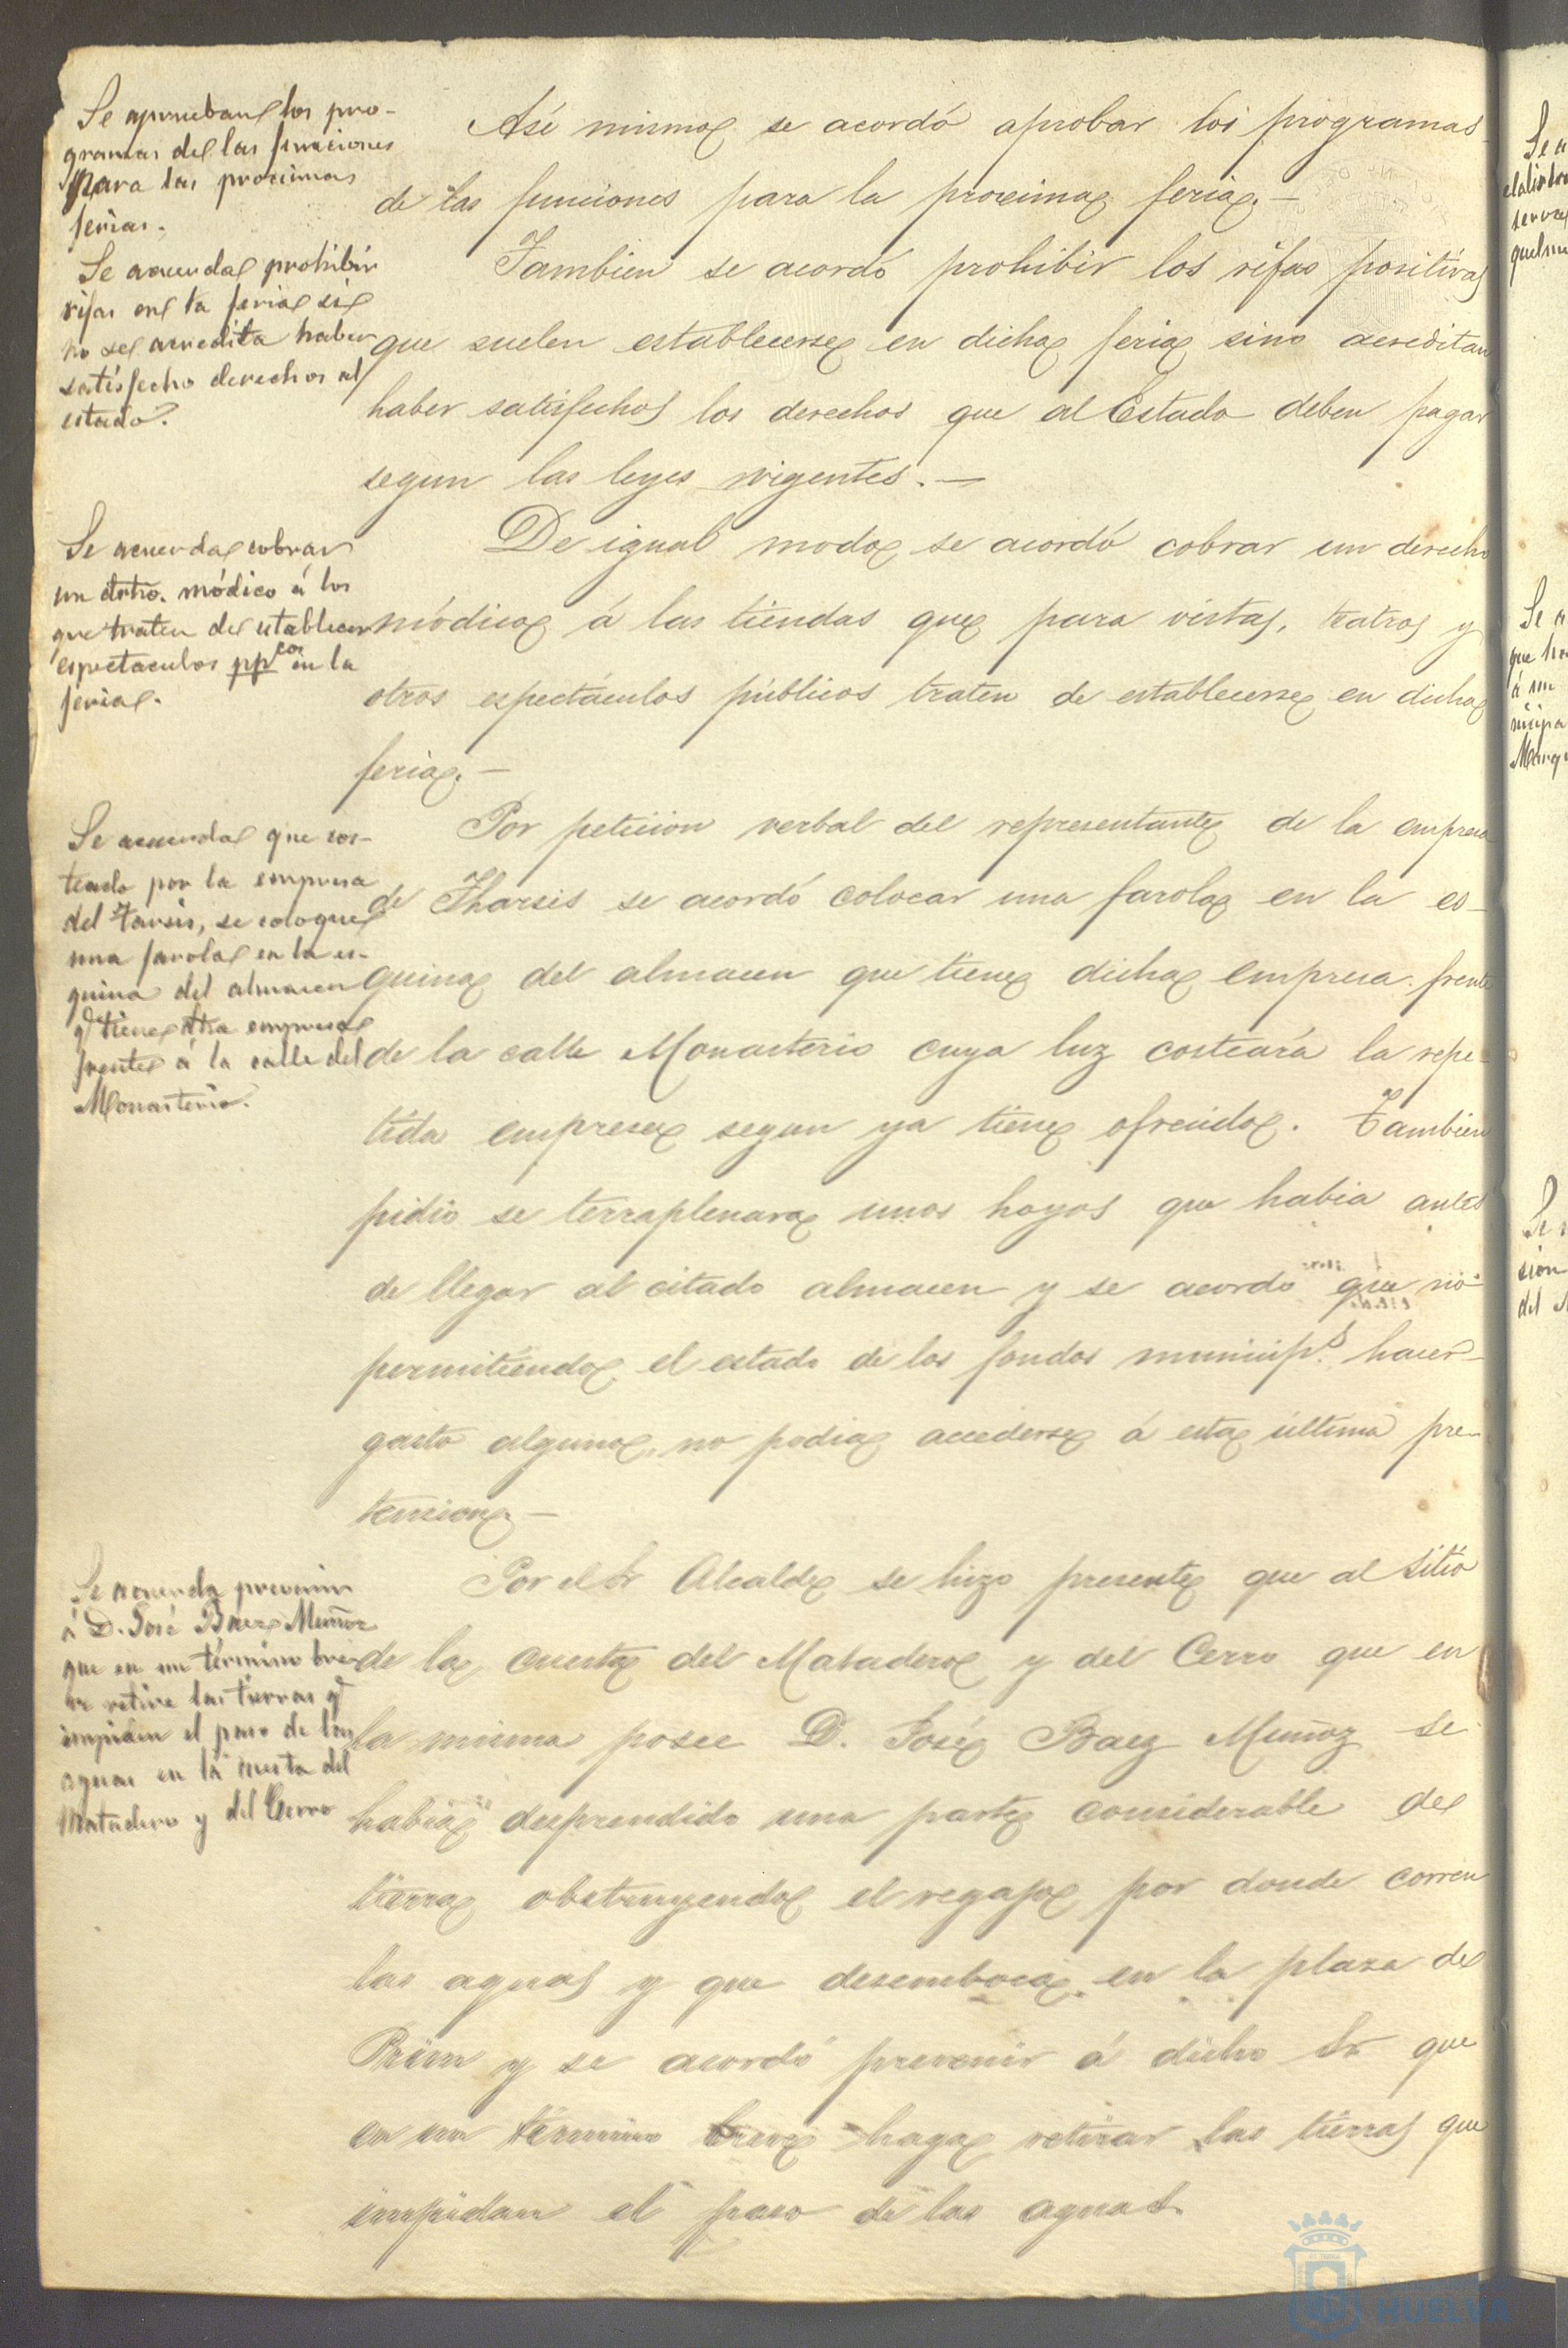 Se aprueban los pro-
gramas de las funciones
para las proximas
ferias.
Así mismo se acordó aprobar los programas
de las funciones para la proxima feria.—
Se acuerda prohibir
rifas en la feria si
no se acredita haber
satisfecho derechos al
estado.
Tambien se acordó prohibir los rifas positivas
que suelen establecerse en dicha feria sino acreditan
haber satisfechos los derechos que al Estado deben pagar
segun las leyes vigentes.—
Se acuerda cobrar
un dcho. módico á los
que traten de establecer
espectaculos ppcos en la
feria.
De igual modo se acordó cobrar un derecho
módico á las tiendas que para vistas, teatros y
otros espectáculos públicos traten de establecerse en dicha
feria.—
Se acuerda que cos-
teado por la empresa
del Tarsis, se coloque
una farola en la es-
quina del almacen
q.e tiene dha empresa
frente á la calle del
Monasterio.
Por peticion verbal del representante de la empresa
de Tharsis se acordó colocar una farola en la es-
quina del almacen que tiene dicha empresa frente
de la calle Monasterio cuya luz costeará la repe-
tida empresa segun ya tiene ofrecido. Tambien
pidió se terraplenara unos hoyos que habia antes
de llegar al citado almacen y se acordó que no
permitiendo el estado de los fondos municip.s hacer
gasto alguno, no podia accederse á esta última pre-
tension.—
Se acuerda prevenir
á D. José Baez Muñoz
que en un término bre-
ve retire las tierras q.e
impiden el paso de las
aguas en la cuesta del
Matadero y del Cerro
Por el Sr Alcalde se hizo presente que al sitio
de la cuesta del Matadero y del Cerro que en
la misma posee D. José Baez Muñoz se
habia desprendido una parte considerable de
tierra obstruyendo el regajo por donde corren
las aguas y que desemboca en la plaza de
Prim y se acordó prevenir á dicho Sr que
en un término breve haga retirar las tierras que
impidan el paso de las aguas.
HUELVA